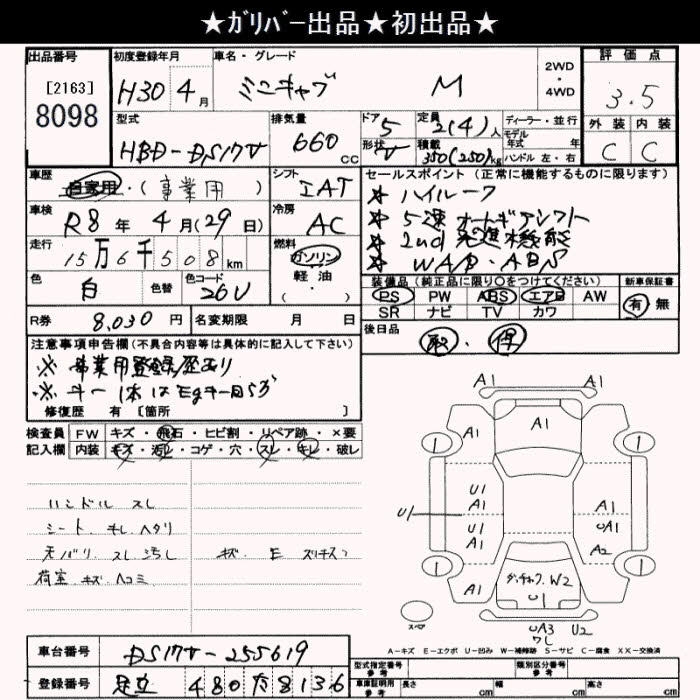 ★ガリバー出品★初出品★
出品番号 初度登録年月 車名・グレード 2WD・4WD 評価点
[2163] H30 4月 ミニキャブ M 3.5
8098
型式 排気量 ドア 5 定員 2(4)人 ディーラー・並行 外装 内装
HBD-DS17V 660cc 形状 V 積載 350(250)kg モデル年式 年 C C
ハンドル 左・右
車歴 自家用・(事業用) シフト IAT セールスポイント(正常に機能するものに限ります)
車検 R8年4月(29日) 冷房 AC ★ハイルーフ
走行 15万6千508km 燃料 ガソリン・軽油・( ) ★5速オートギアシフト
★2nd発進機能
色 白 色替 色コード 26U ★WAB・ABS
装備品(純正品に限り○をつけてください) 新車保証書
PS PW ABS エアB AW 有 無
SR ナビ TV カワ
R券 8,030円 名変期限 月 日 後日品
取・得
注意事項申告欄(不具合内容等は具体的に記入して下さい)
※事業用登録歴あり
※キー1本はEgキー回らず
修復歴 有[箇所 ]
検査員 FW キズ・飛石・ヒビ割・リペア跡・×要
記入欄 内装 キズ・汚レ・コゲ・穴・スレ・キレ・破レ
ハンドル スレ
シート、キレ ヘタリ
天バリ、スレ 汚し キズ、E
荷室 キズ ヘコミ
A1 A1
A1 A1
1 1
U1
A1 A1
U1 U1 UA1
A1 A2
1 1
A1 W2 A1
U1
スペア UA3 U2
ワレ
A-キズ E-エクボ U-凹み W-補修跡 S-サビ C-腐食 XX-交換済
車台番号 DS17V-255619
型式指定番号 参考 類別区分番号 参考
登録番号 足立 480 8136
車庫証明用 参考 長さ cm 幅 cm 高さ cm